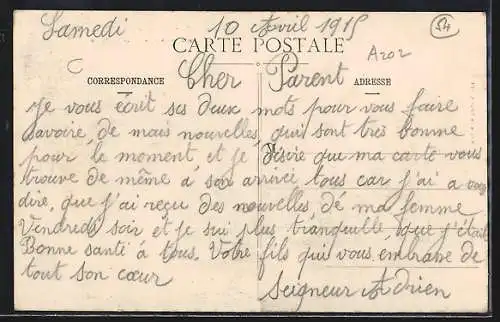 Samedi 10 Avril 1915
54
CARTE POSTALE
A202
CORRESPONDANCE
ADRESSE
Cher Parent
Je vous écrit ses deux mots pour vous faire
savoire de mais nouvelles, qui sont très bonne
pour le moment, et je désire qui ma carte vous
trouve de même a son arrivée tous car j'ai a vous
dire, que j'ai reçu des nouvelles de ma femme
Vendredi soir et je sui plus tranquille, que j'étais
Bonne santé a tous. Votre fils qui vous embrasse de
tout son cœur
Seigneur Adrien